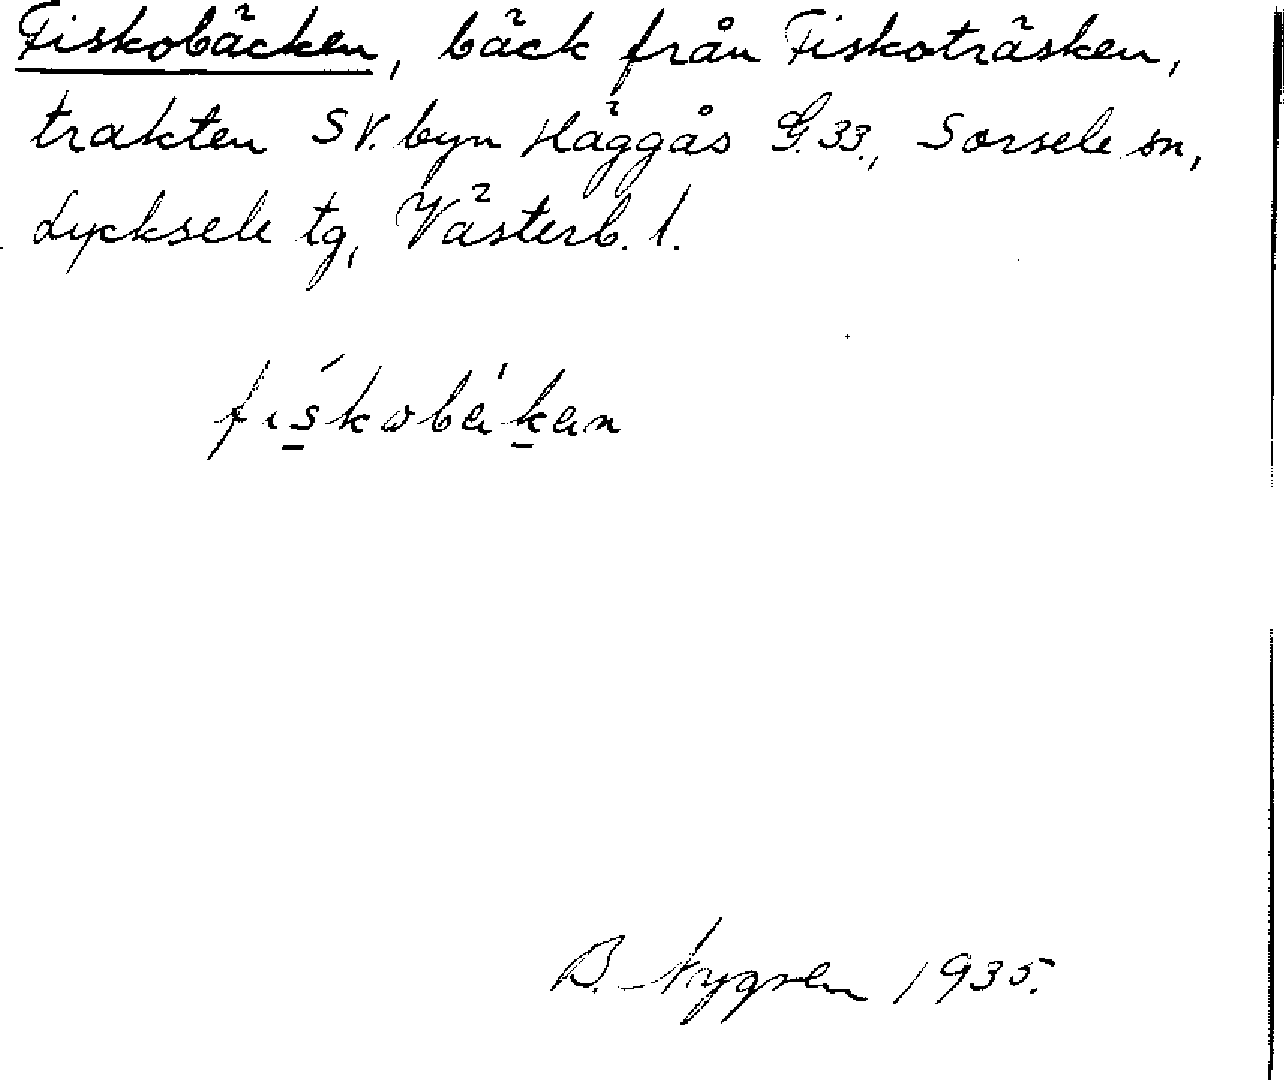 Fiskobäcken, bäck från Fiskoträsken,
trakten SV. byn Häggås G.33., Sorsele sn,
Lycksele tg, Västerb. l.
fiskobäken
B. Nygren 1935.